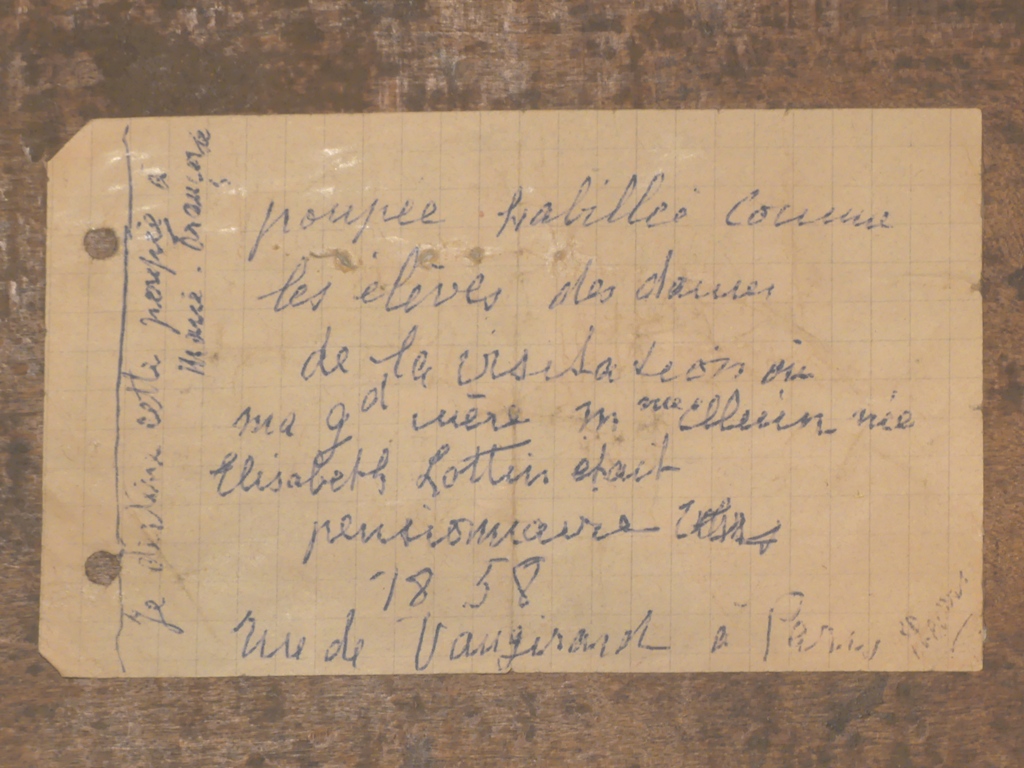 Je destine cette poupée à
Marie-Françoise
poupee habillée comme
les élèves des dames
de la visitation où
ma gd mère Mme née
Elisabeth Lottin etait
pensionnaire
1858
rue de Vaugirard à Paris